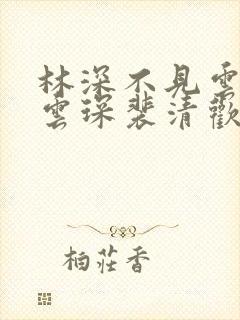 林深不見雲
雲琛裴清歡
柏莊香